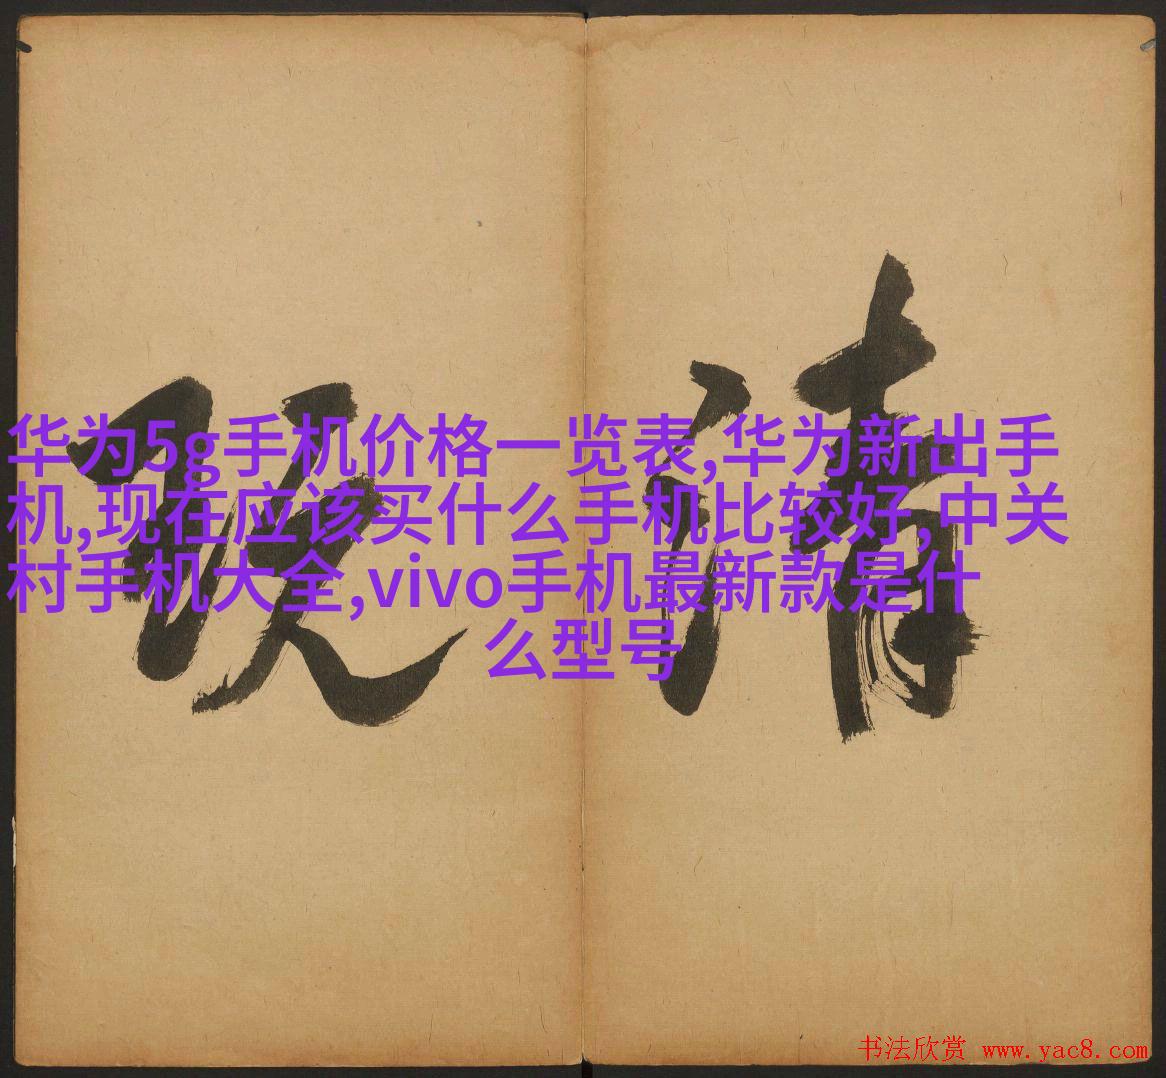 清
玩
华为5g手机价格一览表,华为新出手
机,现在应该买什么手机比较好,中关
村手机大全,vivo手机最新款是什
么型号
书法欣赏 www.yac8.com